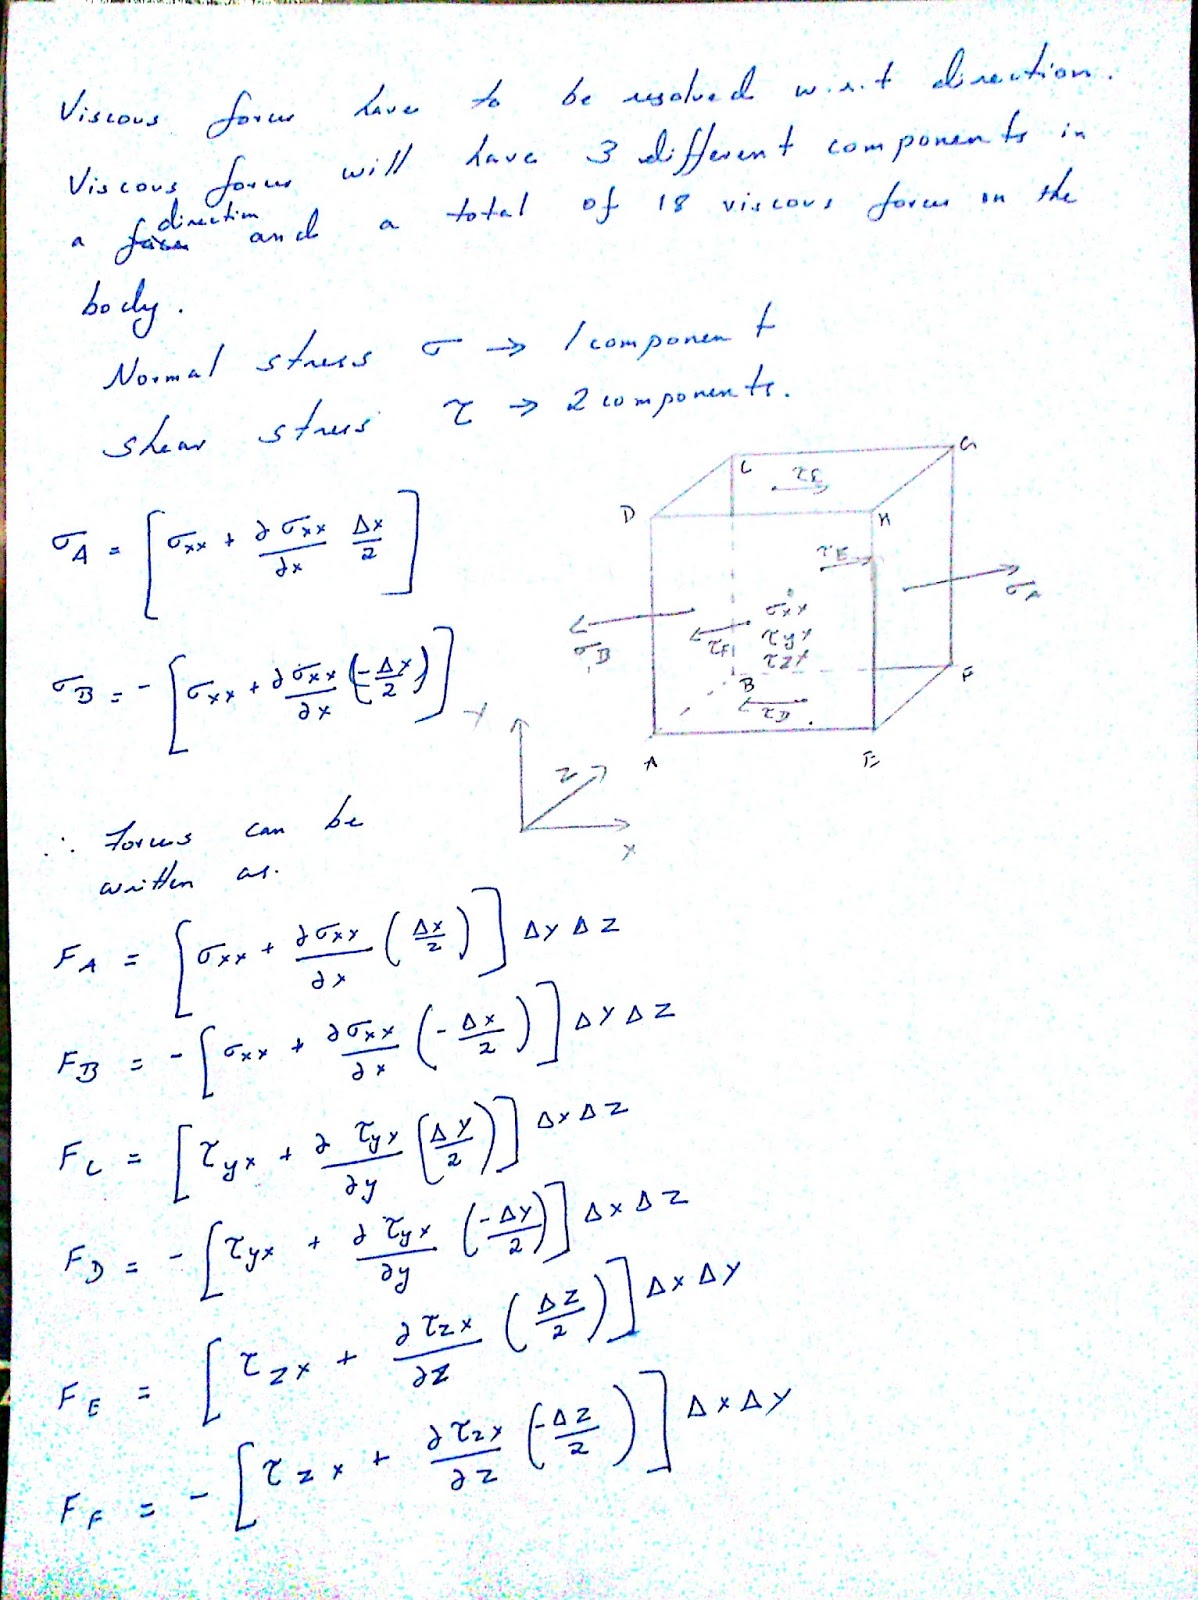 Viscous forces have to be resolved w.r.t direction.
Viscous forces will have 3 different components in
direction
a and a total of 18 viscous forces in the
body.
Normal stress σ → 1 component
shear stress τ → 2 components.
σ_A = [σ_xx + ∂σ_xx/∂x Δx/2]
σ_B = - [σ_xx + ∂σ_xx/∂x (-Δx/2)]
C
G
τ_C
D
H
τ_E
σ_A
σ_B
τ_F
σ_xx
τ_yx
τ_zx
B
τ_D
F
A
E
Y
Z
X
∴ Forces can be
written as.
F_A = [σ_xx + ∂σ_xx/∂x (Δx/2)] Δy Δz
F_B = - [σ_xx + ∂σ_xx/∂x (-Δx/2)] Δy Δz
F_C = [τ_yx + ∂τ_yx/∂y (Δy/2)] Δx Δz
F_D = - [τ_yx + ∂τ_yx/∂y (-Δy/2)] Δx Δz
F_E = [τ_zx + ∂τ_zx/∂z (Δz/2)] Δx Δy
F_F = - [τ_zx + ∂τ_zx/∂z (-Δz/2)] Δx Δy